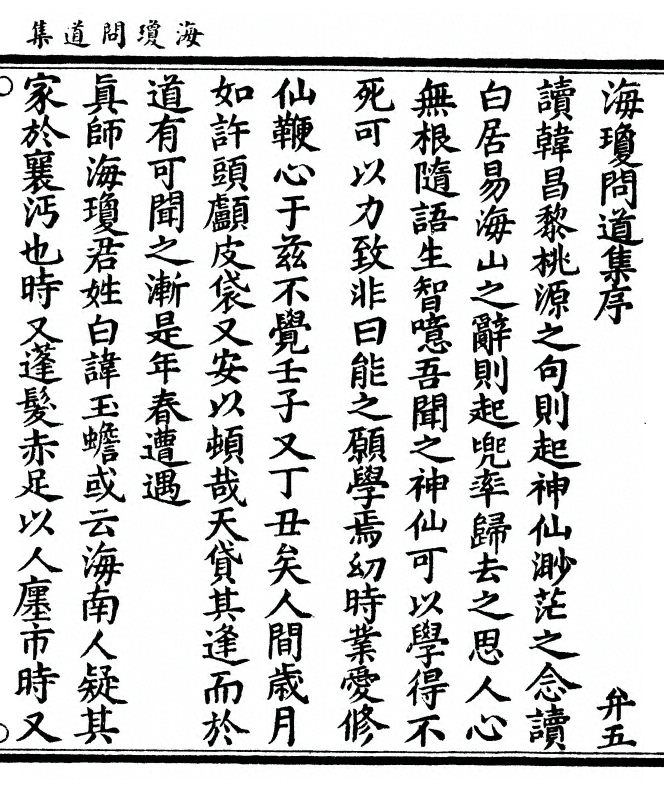 海瓊問道集
海瓊問道集序
弁五
讀韓昌黎桃源之句則起神仙渺茫之念讀
白居易海山之辭則起兜率歸去之思人心
無根隨語生智噫吾聞之神仙可以學得不
死可以力致非曰能之願學焉幼時業愛修
仙鞭心于茲不覺壬子又丁丑矣人間歲月
如許頭顱皮袋又安以頓哉天貸其逢而於
道有可聞之漸是年春遭遇
眞師海瓊君姓白諱玉蟾或云海南人疑其
家於襄沔也時又蓬髮赤足以入廛市時又